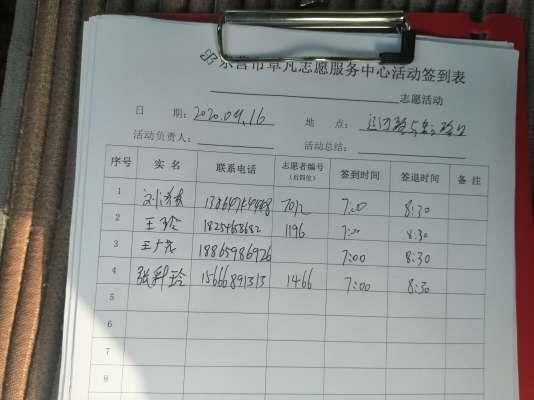 东营市草凡志愿服务中心活动签到表
志愿活动
日 期: 2020.09.16 地 点:
活动负责人: 活动总结:
序号 实 名 联系电话 志愿者编号(后四位) 签到时间 签退时间 备 注
1 7012 7:00 8:30
2 王玲 1196 7:00 8:30
3 王广亮 18865986926 7:00 8:30
4 张彩玲 15666891313 1466 7:00 8:30
5
6
7
8